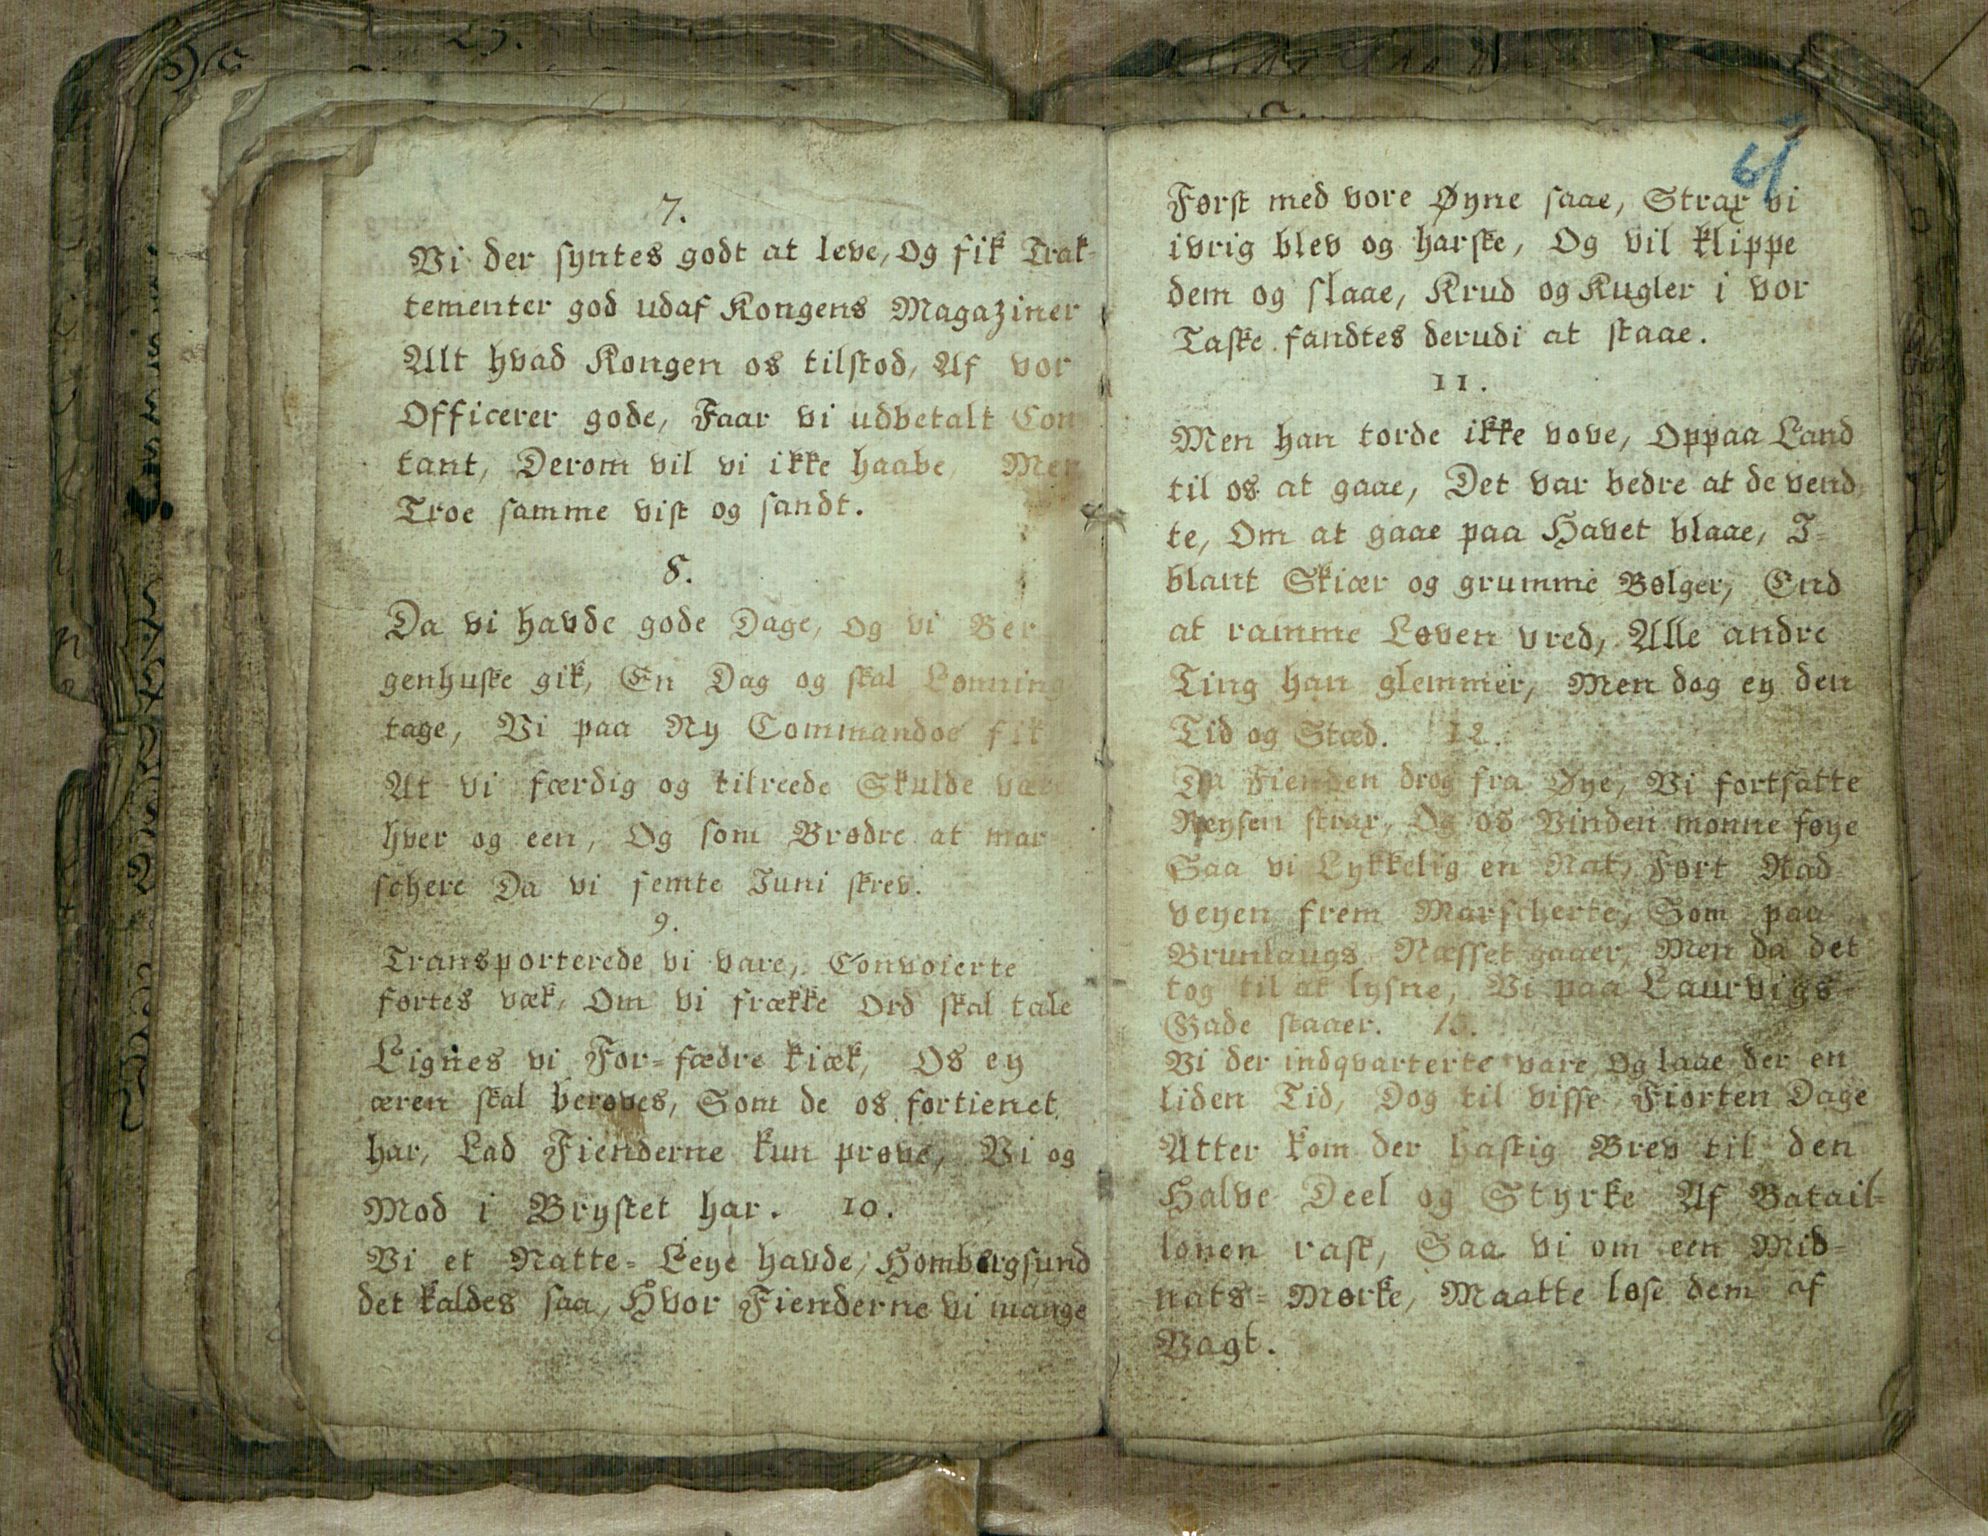 7.
Vi der syntes godt at leve, og fik Trak-
tementer god udaf Kongens Magaziner
Alt hvad Kongen os tilstod, Af vor
Officerer gode, Faar vi udbetalt Con
tant, Derom vil vi ikke haabe, Men
Troe samme vist og sandt.
8.
Da vi havde gode Dage, og vi Ber
genhuske gik, En Dag og skal Lønning
tage, Vi paa Ny Commandoe fik
At vi færdig og tilreede Skulde være
hver og een, Og som Brødre at mar
schere Da vi femte Juni skrev.
9.
Transporterede vi vare, Convoierte
førtes væk, Om vi frække Ord skal tale
Lignes vi For=fædre kiæk, Os ey
æren skal berøves, Som de os fortienet
har, Lad Fienderne kun prøve, Vi og
Mod i Brystet har. 10.
Vi et Natte=Leye havde, Hombergsund
det kaldes saa, Hvor Fienderne vi mange
61
Først med vore Øyne saae, Strax vi
ivrig blev og harske, Og vil klippe
dem og slaae, Krud og Kugler i vor
Taske fandtes derudi at staae.
11.
Men han torde ikke vove, Oppaa Land
til os at gaae, Det var bedre at de vend
te, Om at gaae paa Havet blaae, I=
blant Skiær og grumme Bølger, End
at ramme Løven vred, Alle andre
Ting han glemmer, Men dog ey den
Tid og Stæd. 12.
Da Fienden drog fra Øye, Vi fortsatte
Reysen strax, Og os Vinden monne føye
Saa vi Lykkelig en Nat, Fort Rad
veyen frem Marscherte, Som paa
Brunlaugs Næsset gaaer, Men da det
tog til at lysne, Vi paa Laurvigs
Gade staaer. 13.
Vi der indqvarterte vare, Og laae der en
liden Tid, Dog til visse Fiorten Dage
Atter kom der hastig Brev til den
Halve Deel og Styrke Af Batail=
lonen rask, Saa vi om een Mid=
nats=Mørke, Maatte løse dem af
Vagt.